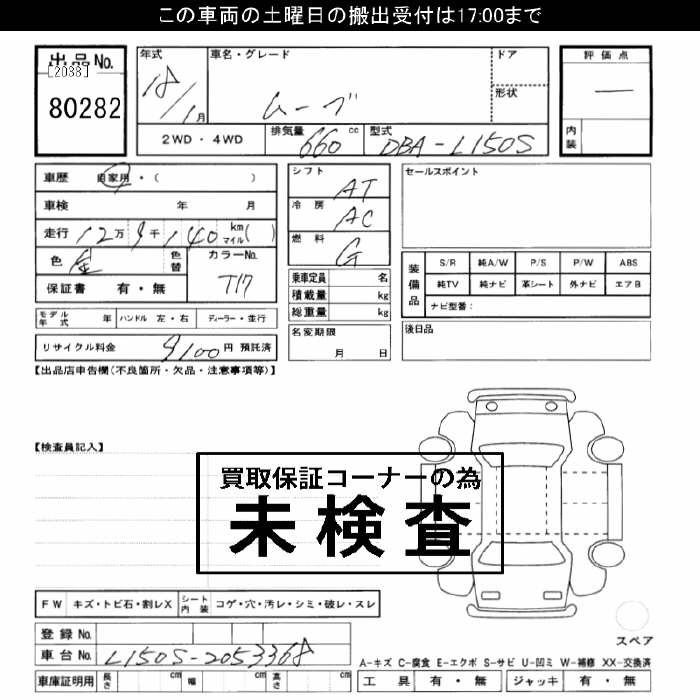 この車両の土曜日の搬出受付は17:00まで
出品No.
[2088]
80282
年式
18/1月
車名・グレード
ムーブ
ドア
形状
2WD・4WD
排気量 660 cc
型式 DBA-L150S
評価点
—
内装
車歴 自家用・( )
車検 年 月
走行 12万 9千 140 km マイル ( )
色 金 色替
カラーNo. T17
保証書 有・無
モデル年式 年
ハンドル 左・右
ディーラー・並行
リサイクル料金 9100円 預託済
シフト AT
冷房 AC
燃料 G
乗車定員 名
積載量 kg
総重量 kg
名変期限
月 日
セールスポイント
装備品
S/R 純A/W P/S P/W ABS
純TV 純ナビ 革シート 外ナビ エアB
ナビ型番:
後日品
【出品店申告欄(不良箇所・欠品・注意事項等)】
【検査員記入】
買取保証コーナーの為
未検査
FW キズ・トビ石・割レX
シート内装 コゲ・穴・汚レ・シミ・破レ・スレ
登録No.
車台No. L150S-2053368
車庫証明用 長さ cm 幅 cm 高さ cm
スペア
A-キズ C-腐食 E-エクボ S-サビ U-凹ミ W-補修 XX-交換済
工具 有・無 ジャッキ 有・無